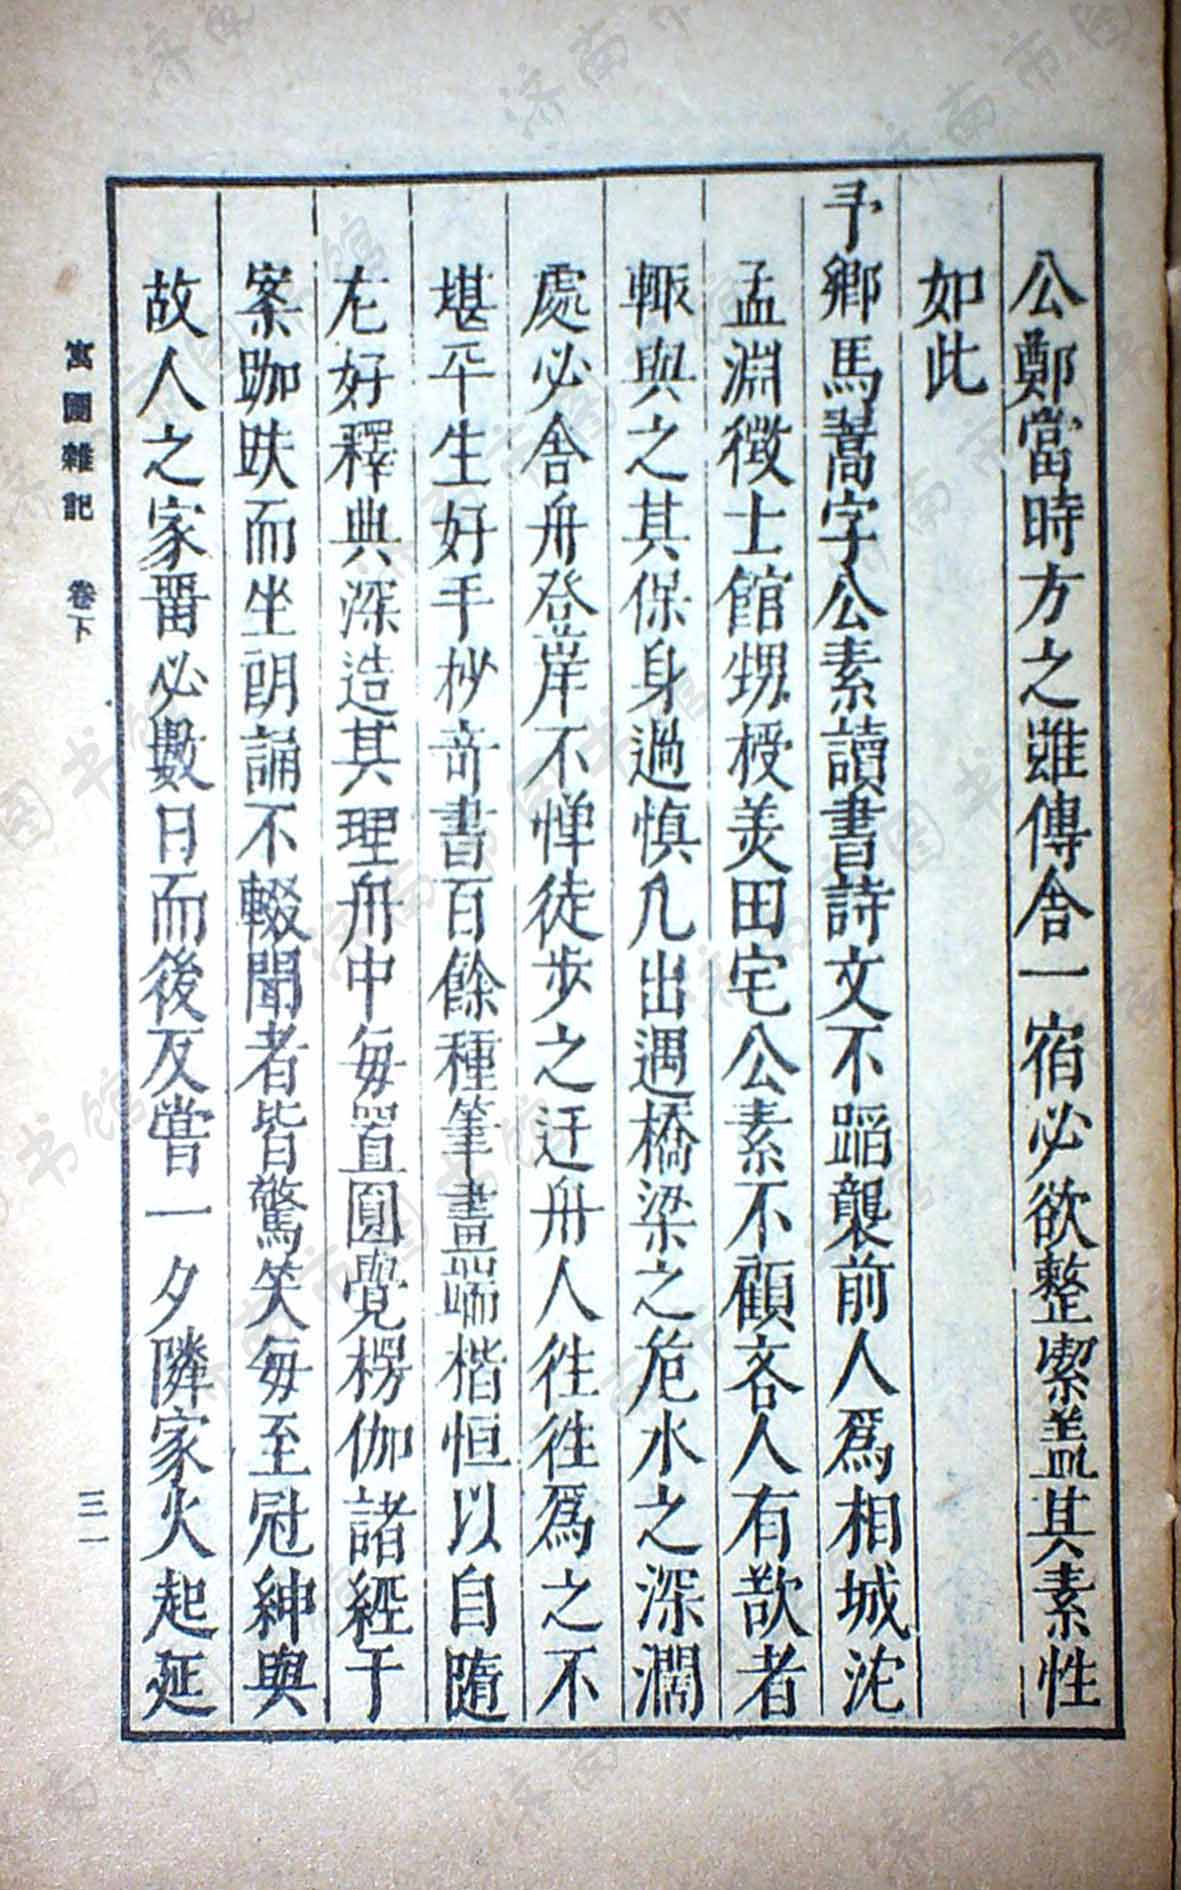 公鄭當時方之雖傳舍一宿必欲整潔蓋其素性
如此
予鄉馬蒿字公素讀書詩文不蹈襲前人爲相城沈
孟淵徵士館甥授美田宅公素不顧吝人有歆者
輒與之其保身過慎凡出遇橋梁之危水之深濶
處必舍舟登岸不憚徒步之迂舟人徃徃爲之不
堪平生好手抄奇書百餘種筆畫端楷恒以自隨
尤好釋典深造其理舟中每置圓覺楞伽諸經于
案跏趺而坐朗誦不輟聞者皆驚笑每至冠紳與
故人之家畱必數日而後反嘗一夕隣家火起延
寓圃雜記 卷下
三一
济南市图书馆